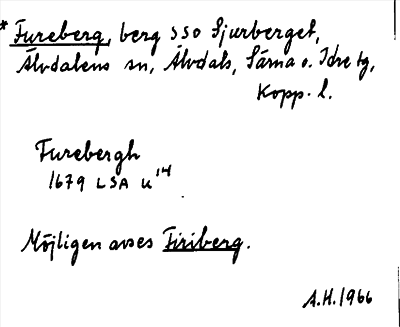 * Fureberg, berg SSO Sjurberget,
Älvdalens sn, Älvdals, Särna o. Idre tg,
Kopp. l.
Furebergh
1679 LSA U 14
Möjligen avses Firiberg.
A.H. 1966